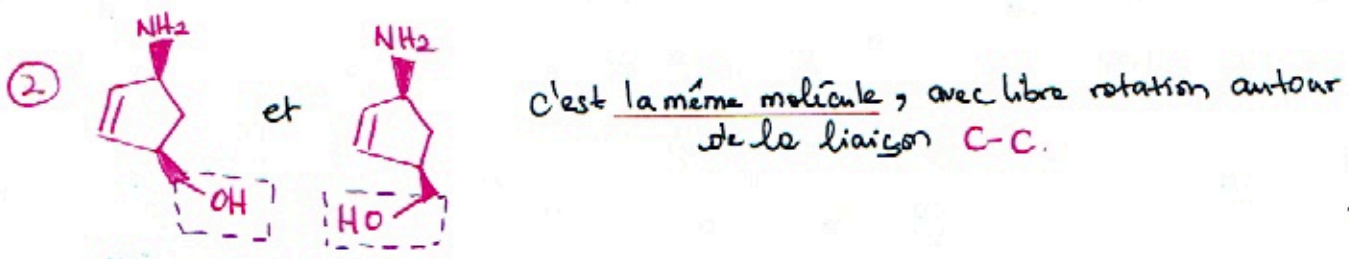 NH2 NH2
② et c'est la même molécule, avec libre rotation autour
de la liaison C-C.
OH HO